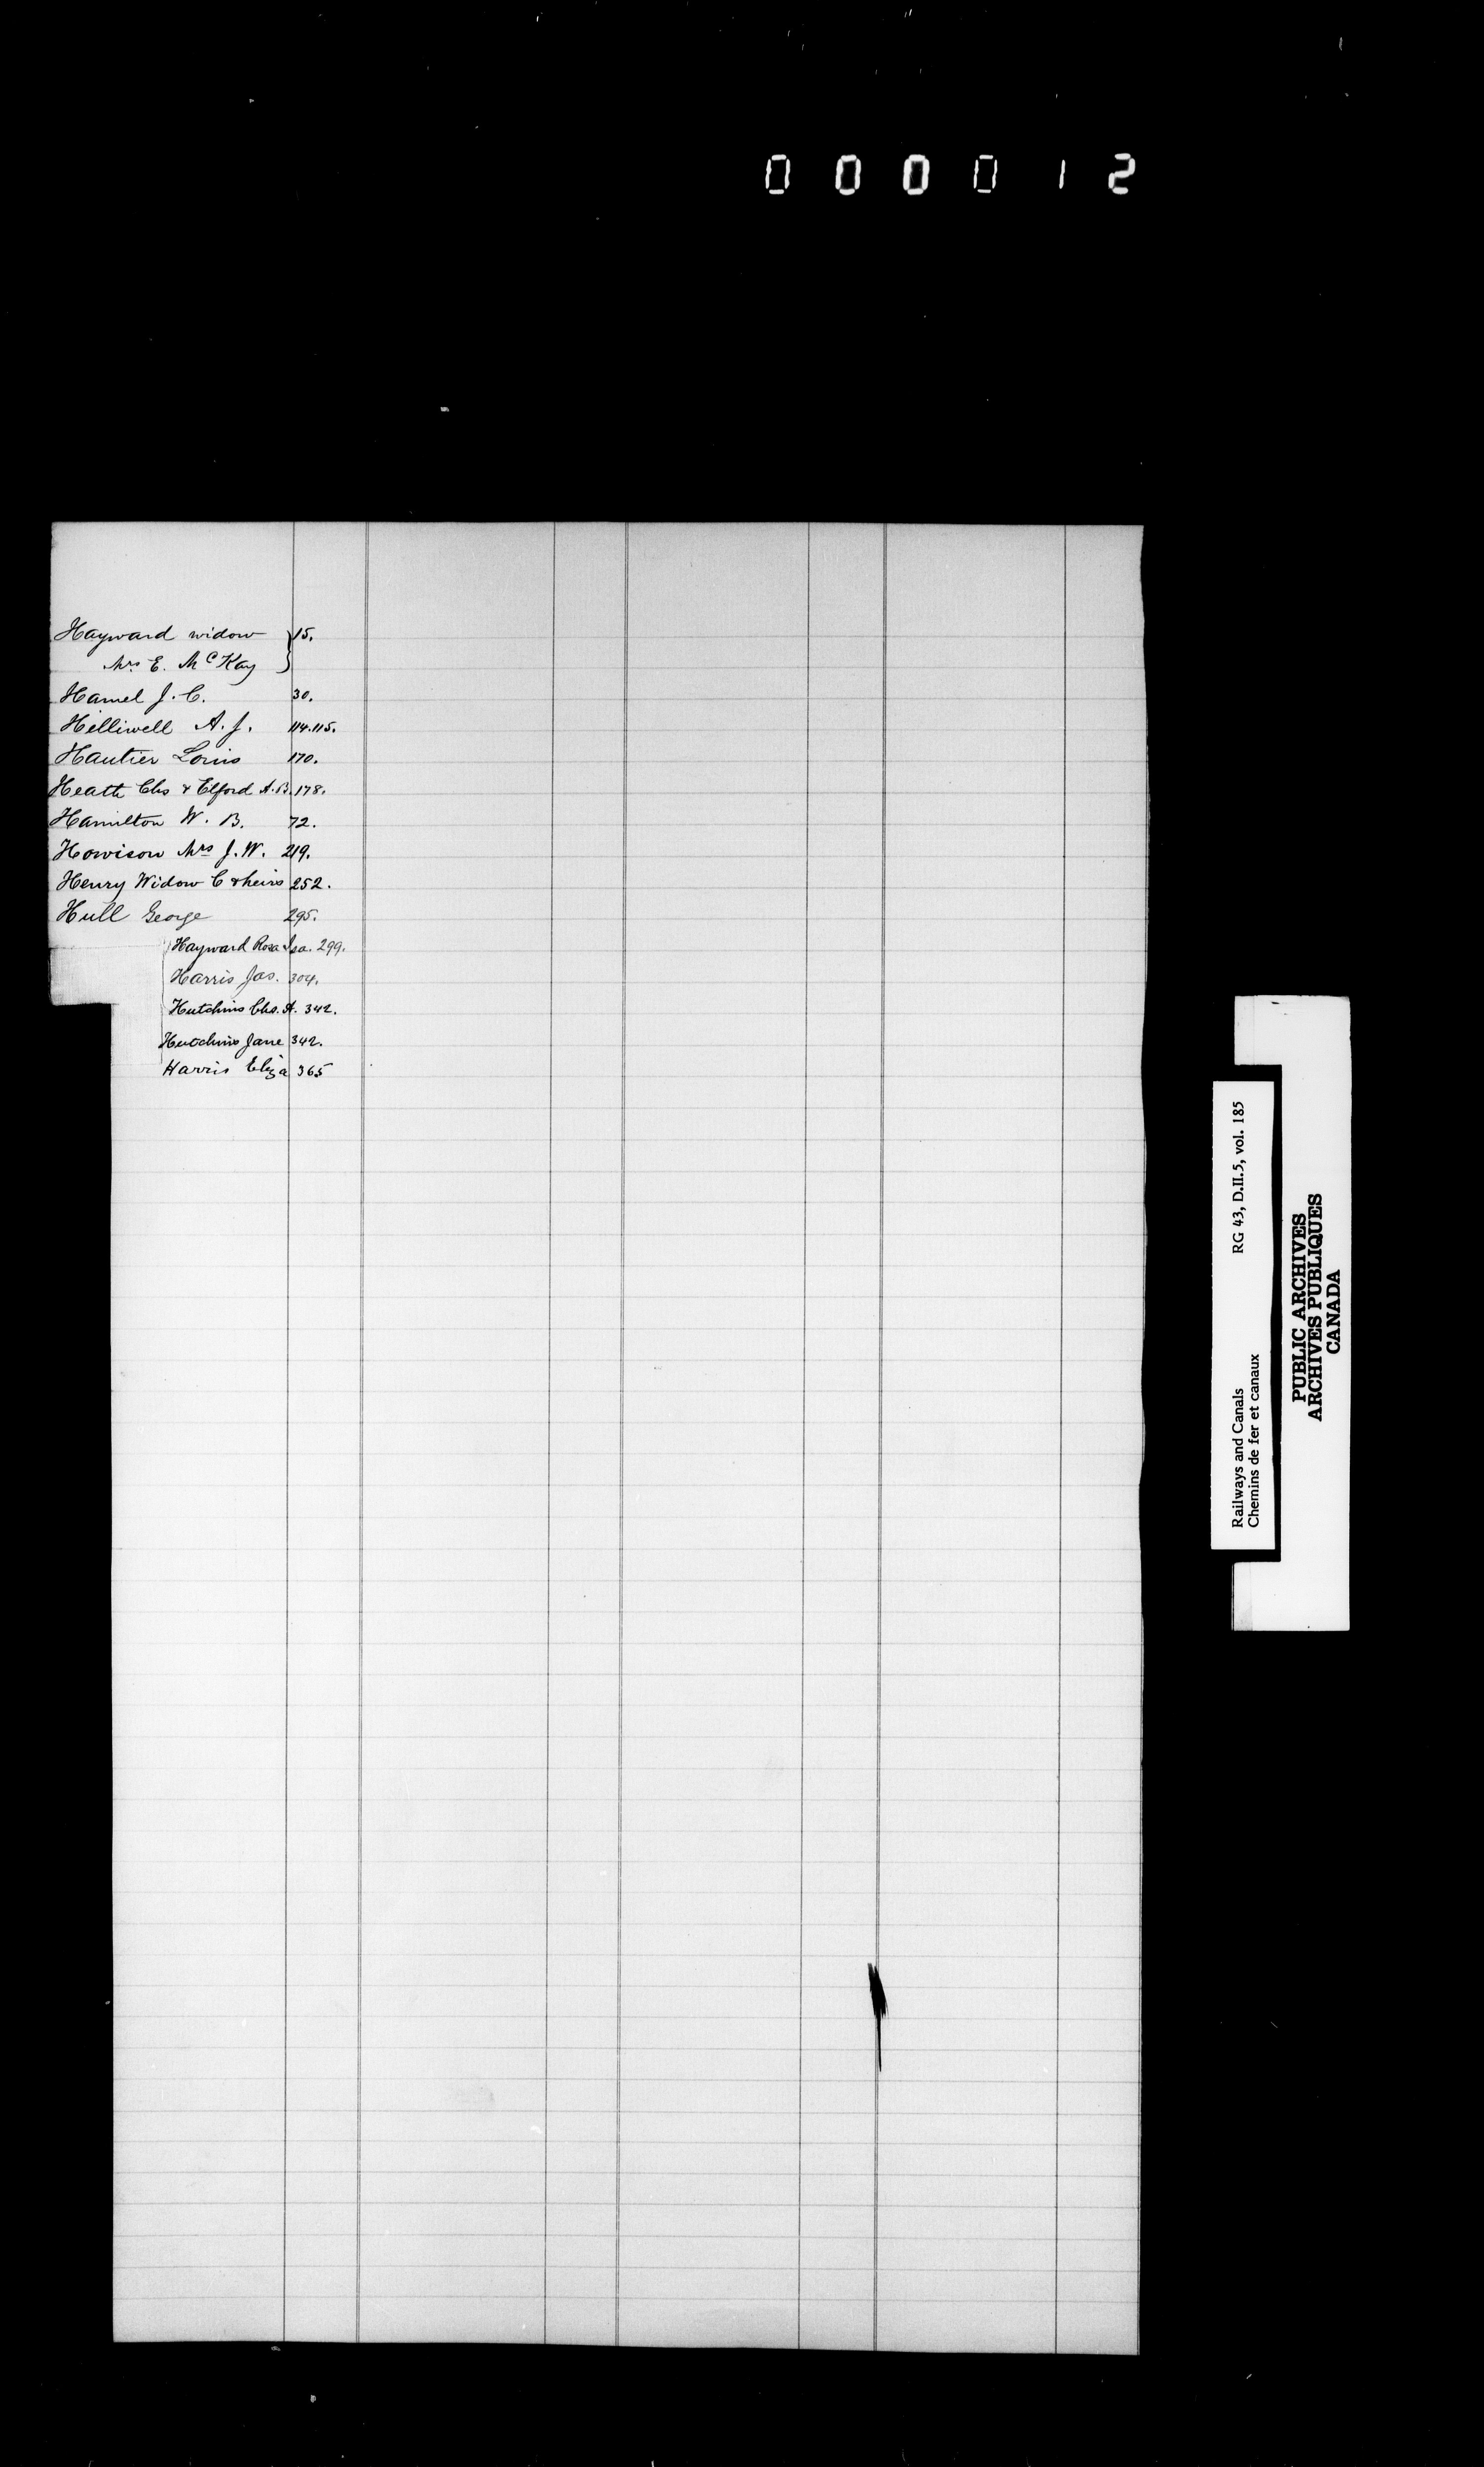 000012
Hayward widow } 15.
Mrs E. McKay
Hamel J. C. 30.
Helliwell A. J. 114.115.
Hautier Louis 170.
Heath Chs & Elford A. B. 178.
Hamilton W. B. 72.
Howison Mrs J. W. 219.
Henry Widow C & heirs 252.
Hull George 295.
Hayward Rosa Isa. 299.
Harris Jas. 304.
Hutchins Chs. A. 342.
Hutchins Jane 342.
Harris Eliza 365
Railways and Canals RG 43, D.II.5, vol. 185
Chemins de fer et canaux
PUBLIC ARCHIVES
ARCHIVES PUBLIQUES
CANADA